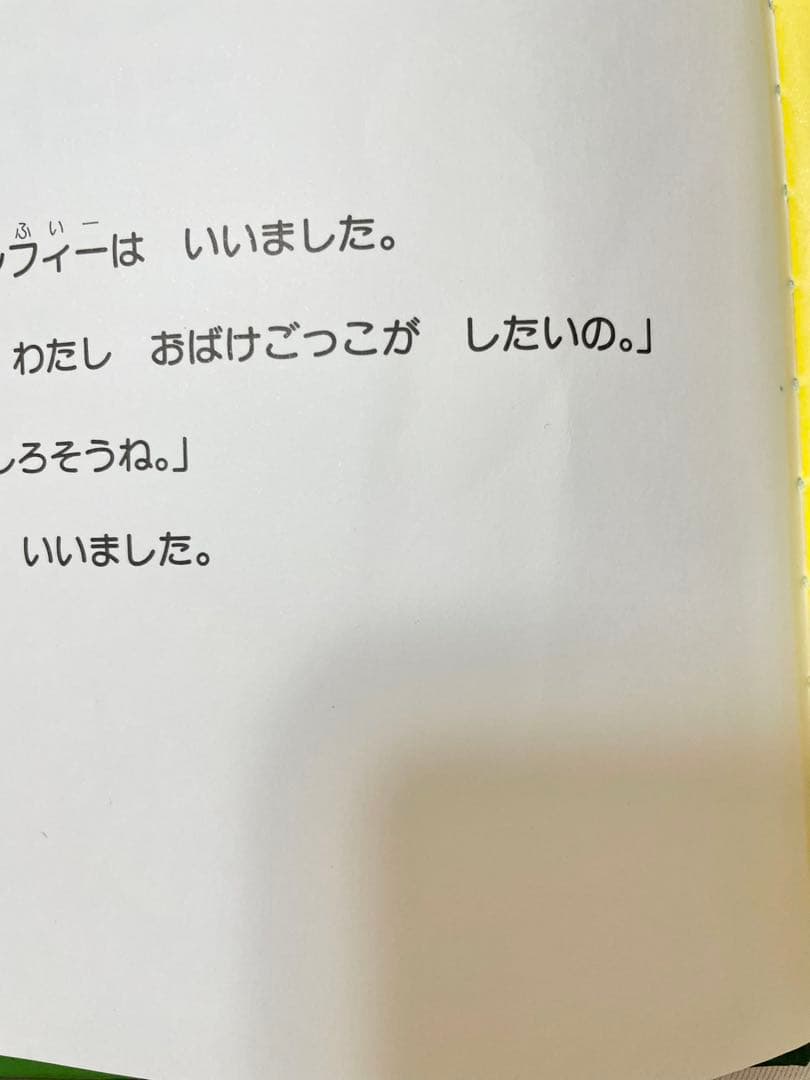 フィーは いいました。
わたし おばけごっこが したいの。」
ろそうね。」
いいました。